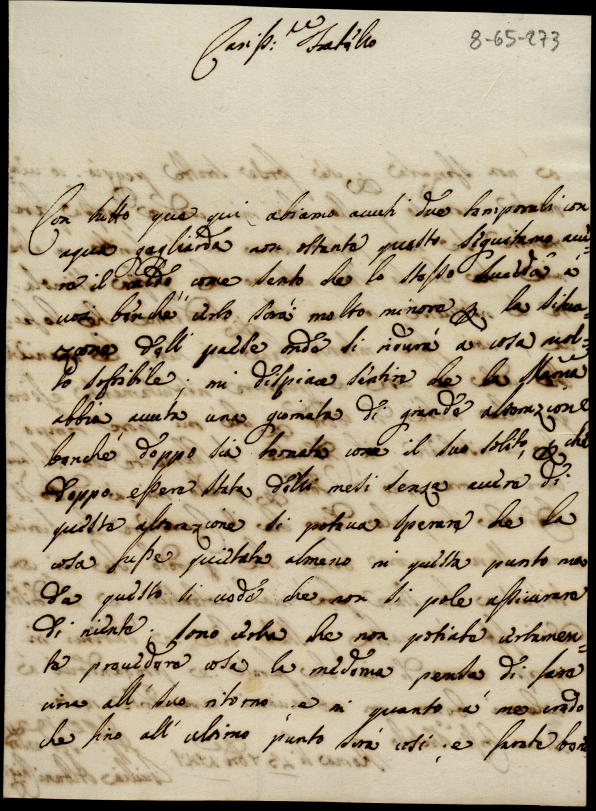 8-65-273
Cariss:mo Fratello
Con tutto que qui abiamo avuti due temporali con
aqua gagliarda non ostante questo seguitamo ave-
re il caldo come sento che lo stesso succede a
voi benche certo sarà molto minore per la situa-
zione delli paese onde si ridurà a cosa mol-
to sofribile; mi dispiace sentire che la Mama
abbia avuta una giornata di grande alterazione
benché doppo sia tornata come il suo solito, per che
doppo essere stata delli mesi senza avere di
queste alterazione si poteva sperare che la
cosa fusse quietata almeno in questo punto ma
da questo si vede che non si pole assicurare
di niente; sono certa che non potiate certamen-
te provedere cosa la medema pensa di fare
circa all' suo ritorno e in quanto à me credo
che fino all' ultimo punto sarà cosi, e farete bene